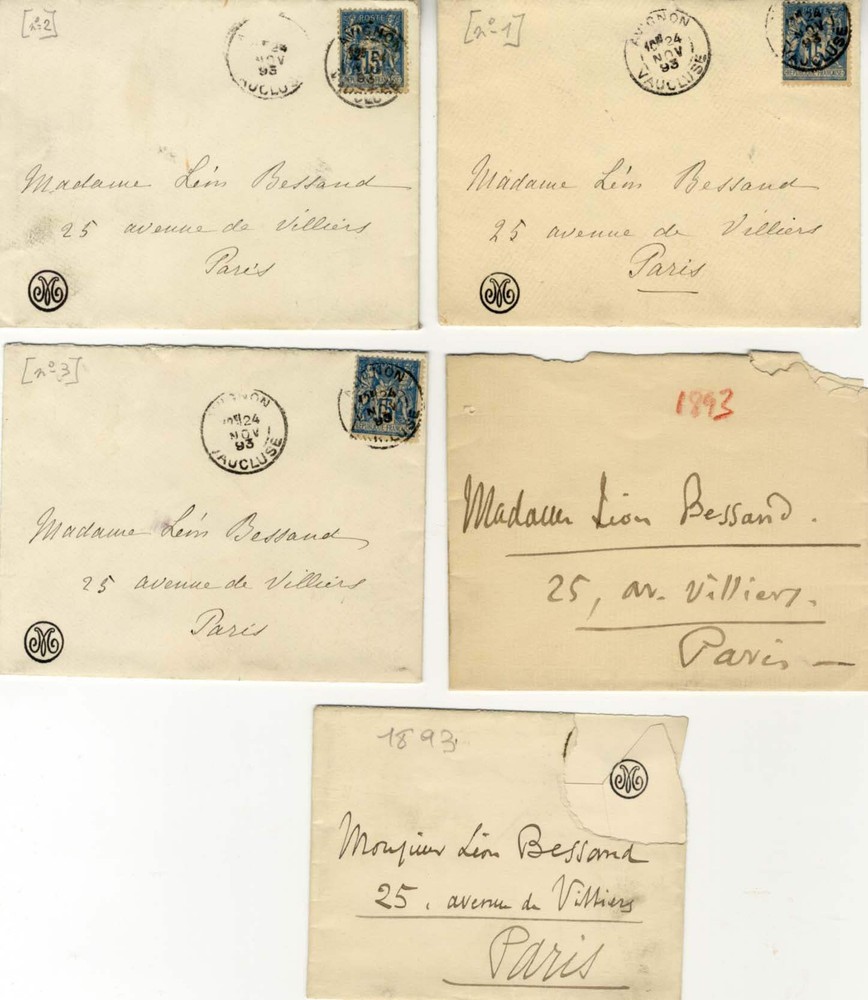 [n°2]
AVIGNON
24
NOV
93
VAUCLUSE
POSTE
15
AVIGNON
93
Madame Léon Bessand
25 avenue de Villiers
Paris
M
[n°1]
AVIGNON
24
NOV
93
VAUCLUSE
15
REPUBLIQUE FRANÇAISE
Madame Léon Bessand
25 avenue de Villiers
Paris
M
[n°3]
AVIGNON
24
NOV
93
VAUCLUSE
AVIGNON
24
NOV
93
15
REPUBLIQUE FRANÇAISE
Madame Léon Bessand
25 avenue de Villiers
Paris
M
1893
Madame Léon Bessand.
25, av. Villiers.
Paris —
1893
M
Monsieur Léon Bessand
25, avenue de Villiers
Paris